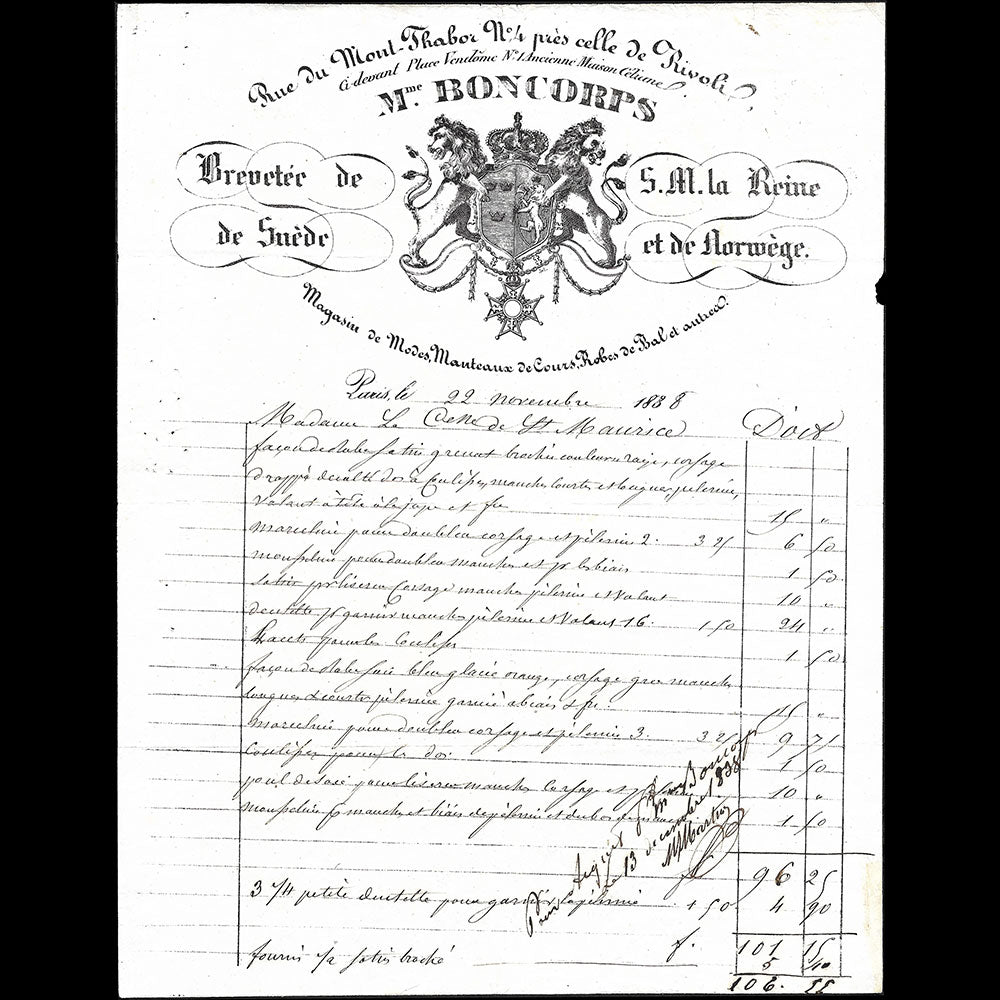 Rue du Mont-Thabor No. 4 près celle de Rivoli,
Ci-devant Place Vendôme No. 1 Ancienne Maison Céliane.
Mme. BONCORPS
Brevetée de S. M. la Reine
de Suède et de Norwège.
Magasin de Modes, Manteaux de Cours, Robes de Bal et autres.
Paris, le 22 novembre 1838
Madame La Ctesse de St Maurice Doit
façon de robe satin grenat broché couleur , corsage
drappé décolté dos à coulisses, manches courtes et longues, pelerine,
volant à tête à la jupe et fre 15 "
marceline pour doubler corsage et pelerine 2. 3 25 6 50
mousseline pour doubler manches et pr les biais 1 50
satin pr liserer corsage manches pelerine et volant 10 "
dentelle pr garnir manches pelerine et volant 16. 1 50 24 "
lacets pour les coulisses 1 50
façon de robe soie bleu glacé orange, corsage gros manches
longues & courtes pelerine garnie à biais & fre 15 "
marceline pour doubler corsage et pelerine 3. 3 25 9 75
coulisses pour le dos 1 50
poul de soie pour liserer manches corsage et 10 "
mousseline pr manches et biais de pelerine et du bas 1 50
96 25
3 1/4 petite dentelle pour garnir la pelerine 1 50 4 90
f. 101 15
fourni 1/2 satin broché 5 40
106. 55
Pour Acquit
Mme Boncorps
le 13 décembre 1838